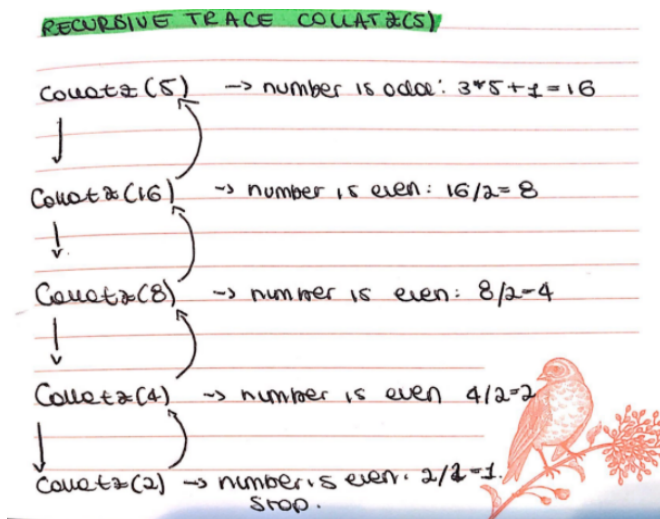 RECURSIVE TRACE COLLATZ(5)
Collatz (5) -> number is odd: 3*5+1=16
Collatz (16) -> number is even: 16/2= 8
Collatz(8) -> number is even: 8/2=4
Collatz (4) -> number is even 4/2=2
Collatz(2) -> number is even: 2/2=1.
Stop.